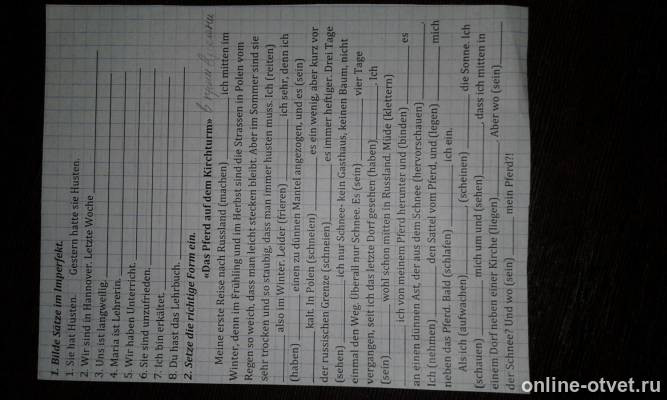 1. Bilde Sätze im Imperfekt.
1. Sie hat Husten. Gestern hatte sie Husten.
2. Wir sind in Hannover. Letzte Woche
3. Uns ist langweilig.
4. Maria ist Lehrerin.
5. Wir haben Unterricht.
6. Sie sind unzufrieden.
7. Ich bin erkältet.
8. Du hast das Lehrbuch.
2. Setze die richtige Form ein.
«Das Pferd auf dem Kirchturm»
Meine erste Reise nach Russland (machen) ich mitten im
Winter, denn im Frühling und im Herbst sind die Strassen in Polen vom
Regen so weich, dass man leicht stecken bleibt. Aber im Sommer sind sie
sehr trocken und so staubig, dass man immer husten muss. Ich (reiten)
also im Winter. Leider (frieren) ich sehr, denn ich
(haben) einen zu dünnen Mantel angezogen, und es (sein)
kalt. In Polen (schneien) es ein wenig, aber kurz vor
der russischen Grenze (schneien) es immer heftiger. Drei Tage
(sehen) ich nur Schnee- kein Gasthaus, keinen Baum, nicht
einmal den Weg. Überall nur Schnee. Es (sein) vier Tage
vergangen, seit ich das letzte Dorf gesehen (haben) . Ich
(sein) wohl schon mitten in Russland. Müde (klettern)
ich von meinem Pferd herunter und (binden) es
an einen dünnen Ast, der aus dem Schnee (hervorschauen) .
Ich (nehmen) den Sattel vom Pferd, und (legen) mich
neben das Pferd. Bald (schlafen) ich ein.
Als ich (aufwachen) , (scheinen) die Sonne. Ich
(schauen) mich um und (sehen) , dass ich mitten in
einem Dorf neben einer Kirche (liegen) . Aber wo (sein)
der Schnee? Und wo (sein) mein Pferd?!
online-otvet.ru